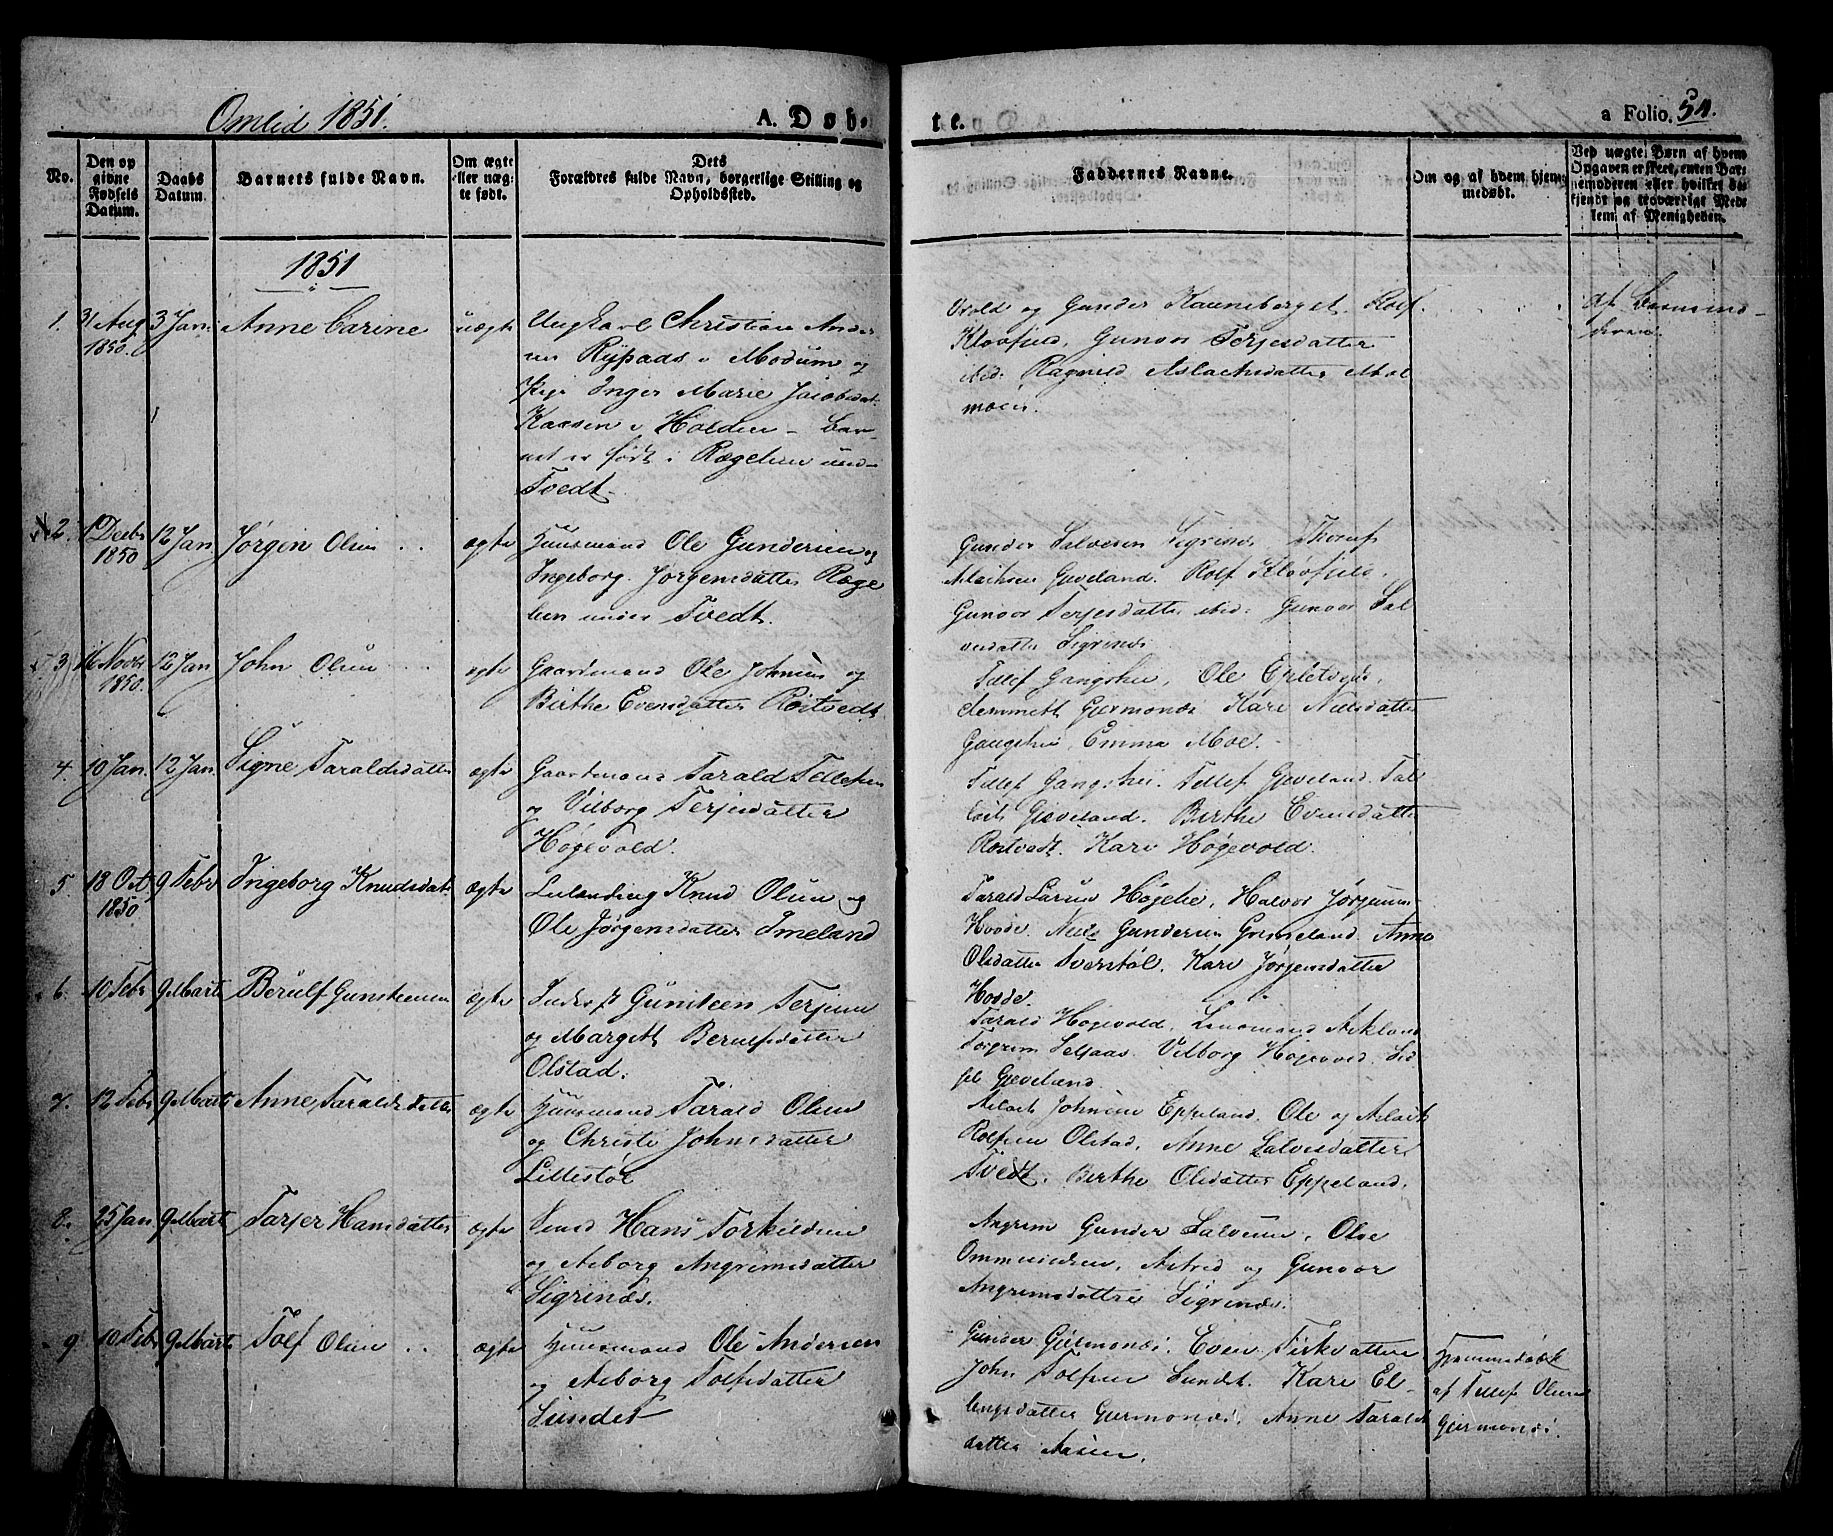 Omlid 1851.
A. Døb-
te.
a Folio. 54.
No.
Den op
givne
Fødsels
Datum.
Daabs
Datum.
Barnets fulde Navn.
Om ægte
eller uæg-
te født.
Dets
Forældres fulde Navn, borgerlige Stilling og
Opholdssted.
Faddernes Navne.
Om og af hvem hjem-
medøbt.
Ved uægte Børn af hvem
Opgaven er skeet, enten Bar-
nemoderen eller hvilket be-
kjendt og troværdigt Med-
lem af Menigheden.
1851
1. 31 Aug 3 Jan. Anne Carine uægte Ungkarl Christian Ander
1850.
sen Rypaas i Modum og
Pige Inger Marie Jacobsdat.
Kaasen i Holden - Bar-
net er født i Rægelien und-
Tvedt.
Vrold og Gunder Kauneberget. Rolf
Kloofjeld, Gunvor Terjesdatter
ibid. Ragnild Aslachsdatter Mol
moen.
af Barnemo-
deren.
2. 1 Decbr 12 Jan. Jørgen Olsen .. ægte Huusmand Ole Gundersen og
1850
Ingeborg Jørgensdatter Ræge
lien under Tvedt.
Gunder Salvesen Sigrinæs,
Gjeveland. Rolf Kloofjeld.
Gunvor Terjesdatter ibid. Gunvor Sal
vesdatter Sigrinæs
3 16 Novbr 12 Jan John Olsen ægte Gaardmand Ole Johnsen og
1850.
Birthe Evensdatter Rostvedt
Tellef Gangshei, Ole
Gjermonæs Kari Nielsdatter
Gangshei, Emma Moe.
4. 10 Jan. 12 Jan. Signe Taraldsdatter ægte Gaardmand Tarald Tellefsen
og Vilborg Terjesdatter
Høgevold.
Tellef Gangshei. Tellef Gjeveland. Tal
leik Gjeveland. Birthe Evensdatter
Rostvedt. Kari Høgevold.
5. 18 Oct 9 Febr Ingeborg Knudsdat. ægte Leilænding Knud Olsen og
1850
Ole Jørgensdatter Imeland
Tarald Larsen Høgelie, Halvor Jørgensen
Hovde. Niels Gundersen Grimeland. Anne
Olsdatter Sverstøl. Kari Jørgensdatter
Hovde.
6. 10 Febr 9 Marts Berulf Gunsteensen ægte Inderst Gunsteen Terjesen
og Margett Berulfsdatter
Olstad.
Tarald Høgevold. Lensmand Askland
Torgrim Selaas. Vilborg Høgevold. Sid
sel Gjeveland.
7. 12 Febr 9 Marts Anne Taraldsdatter ægte Huusmand Tarald Olsen
og Christi Johnsdatter
Lillestøl
Aslach Johnsen Eppeland. Ole og Aslach
Rolfsen Olstad, Anne Salvesdatter
Tvedt. Birthe Olsdatter Eppeland.
8. 25 Jan 9 Marts Tarjer Hansdatter ægte Hans Torkildsen
og Asborg Angrimsdatter
Sigrinæs.
Angrim Gunder Salvesen, Olve
Ommundsen, Astrid og Gunvor
Angrimsdattre Sigrinæs.
9. 10 Febr 9 Marts Tolf Olsen .. ægte Huusmand Ole Andersen
og Asborg Tolfsdatter
Lundet
Gunder Gjermonæs. Even
John Tolfsen Lundet. Kari El-
lingsdatter Gjermonæs. Anne Taralds
datter Aasen.
Hjemmedøbt
af Tellef Olsen
Gjermonæs.